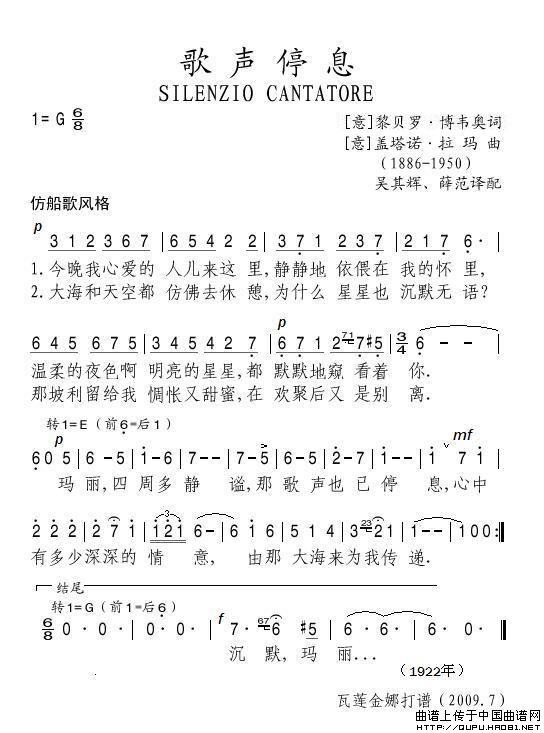 歌声停息
SILENZIO CANTATORE
1=G 6/8
[意]黎贝罗·博韦奥词
[意]盖塔诺·拉 玛 曲
(1886-1950)
吴其辉、薛范译配
仿船歌风格
p
3 1 2 3 6 7 | 6 5 4 2 2 | 3 7 1 3 2 1 | 2 1 7 6· |
1.今晚我心爱的 人儿来这 里,静静地 依偎在 我的怀 里,
2.大海和天空都 仿佛去休 憩,为什么 星星也 沉默无 语?
p
6 4 5 6 4 5 | 6 4 5 4 3 | 6 7 1 2 71 7 #5 | 3/4 6 - - |
温柔的夜色啊 明亮的星星,都 默默地窥 看着 你.
那坡利留给我 惆怅又甜蜜,在 欢聚后又 是别 离.
转1=E (前6=后1)
p mf
6 0 5 | 6 - 5 | 1 - 6 | 7 - - | 7 - 5 | 7 - 6 | 2 - 7 | 1 - - | 1 7 1 |
玛 丽,四 周多 静 谧,那 歌 声 也 已 停 息,心中
2 2 2 | 2 7 1 | 1 2 1 6 - | 6 1 6 | 5 1 4 | 3 23 2 | 1 - - | 1 0 0 :||
有多少深深的 情 意, 由那 大海来为我 传 递.
结尾
转1=G (前1=后6)
f
6/8 0· 0· | 0· 0· | 7· 67 6 #5 | 6· 6· | 6· 0· ||
沉 默,玛 丽...
(1922年)
瓦莲金娜打谱 (2009.7)
曲谱上传于中国曲谱网
HTTP://QUPU.HAO81.NET